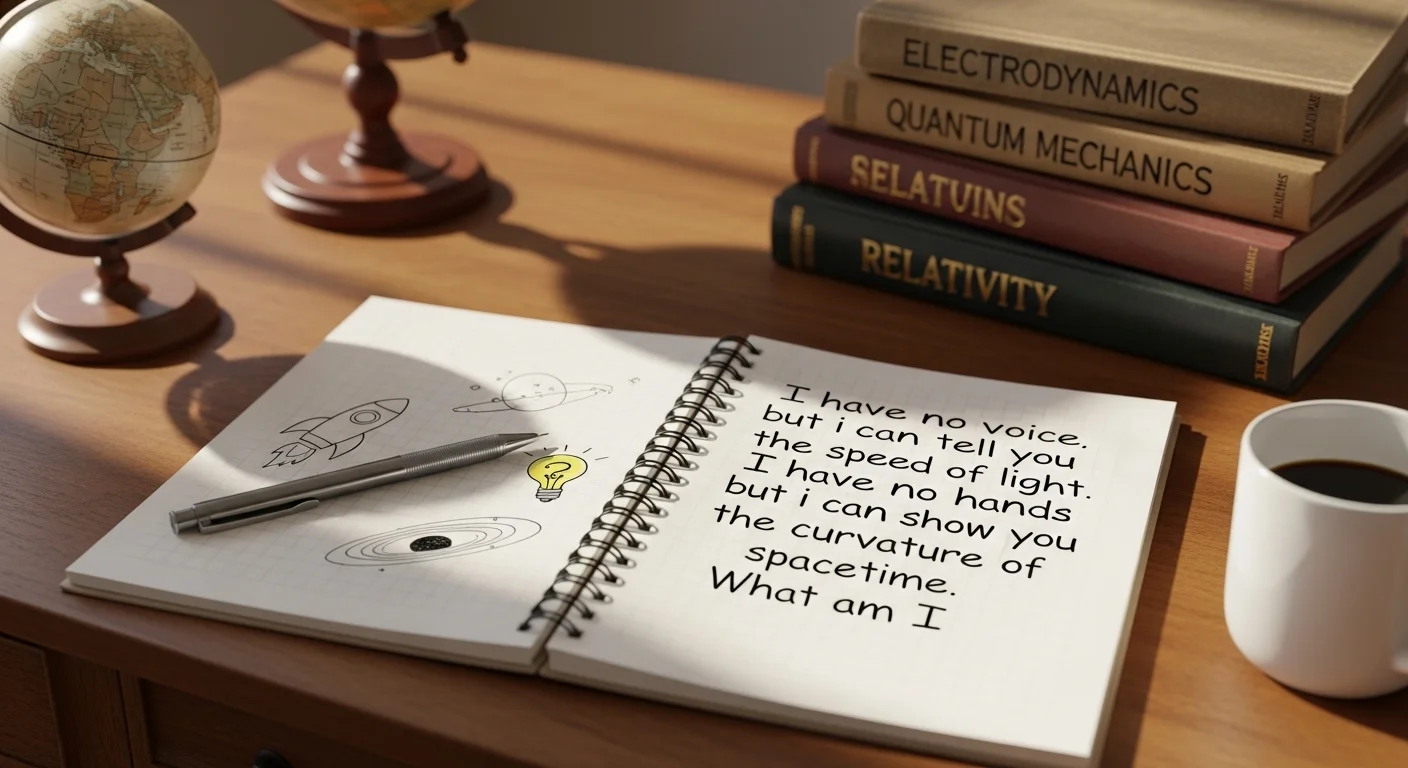 ELECTRODYNAMICS
QUANTUM MECHANICS
SELATVINS
RELATIVITY
I have no voice.
but i can tell you
the speed of light.
I have no hands
but i can show you
the curvature of
spacetime.
What am I